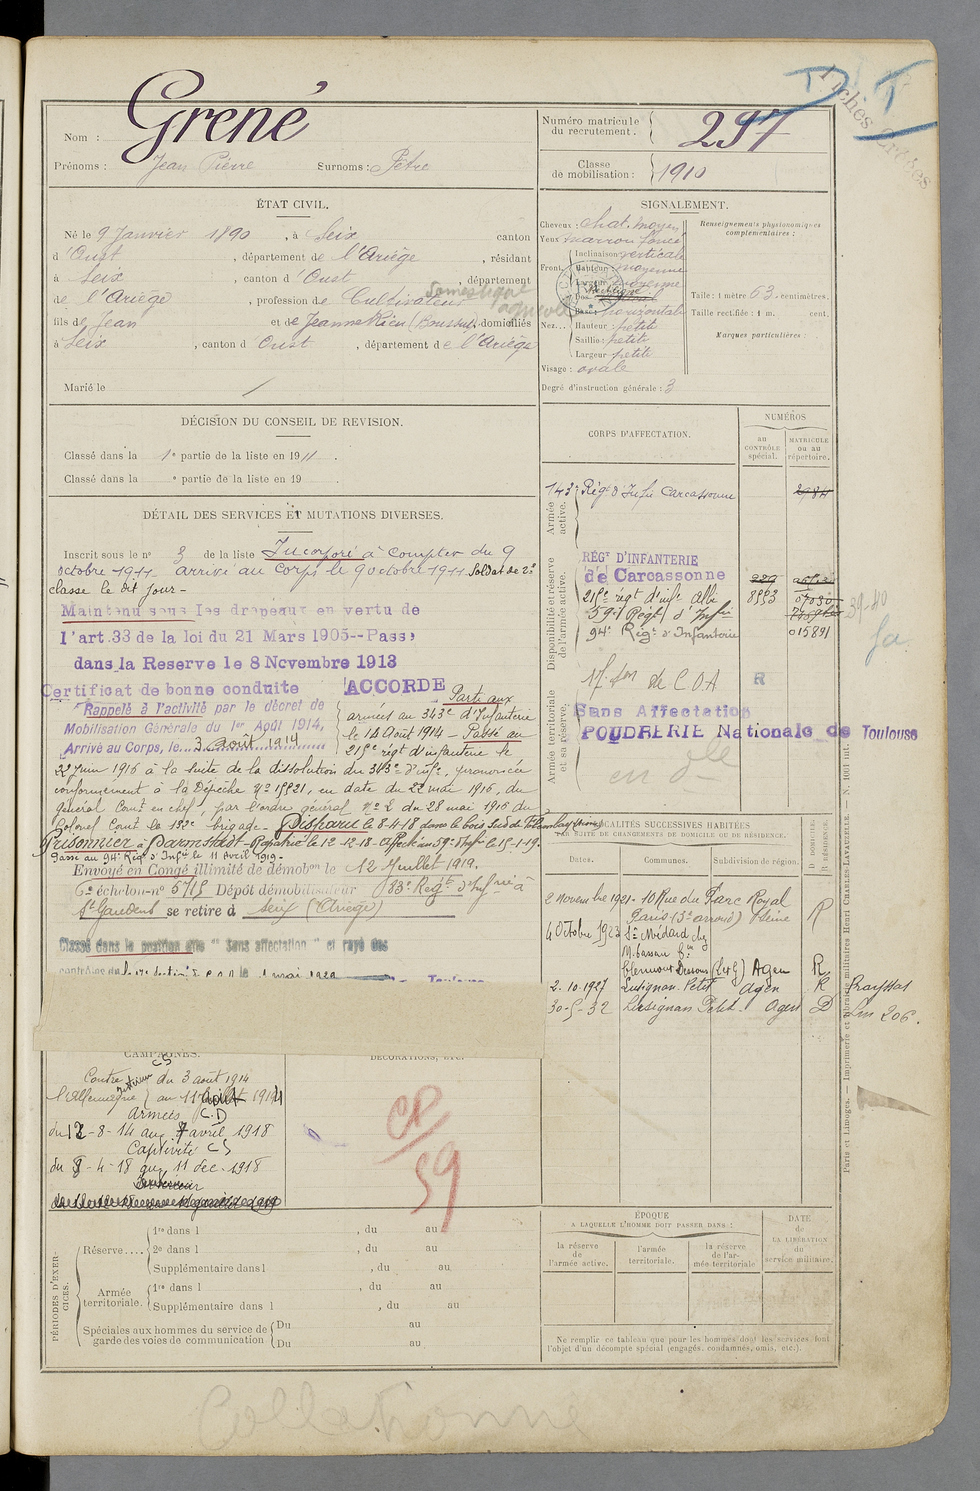 Fichés
Grené
Nom :
Prénoms : Jean Pierre Surnoms : Pètre
Numéro matricule du recrutement. 297
Classe de mobilisation : 1910
ÉTAT CIVIL.
Né le 9 Janvier 1890, à Seix canton
d'Oust, département de l'Ariège, résidant
à Seix, canton d'Oust, département
de l'Ariège, profession de Cultivateur
fils de Jean et de Jeanne Rieu (Boussu) domiciliés
à Seix, canton d'Oust, département de l'Ariège
Marié le /
SIGNALEMENT.
Cheveux : chat. moyen
Yeux marron foncé
Front Inclinaison verticale
Hauteur : moyenne
Largeur : moyenne
Nez... Dos rectiligne
Base : horizontale
Hauteur : petite
Saillie : petite
Largeur petite
Visage : ovale
Degré d'instruction générale : 3
Renseignements physionomiques complémentaires :
Taille : 1 mètre 63 centimètres.
Taille rectifiée : 1 m. cent.
Marques particulières :
DÉCISION DU CONSEIL DE REVISION.
Classé dans la 1e partie de la liste en 1911.
Classé dans la e partie de la liste en 19 .
DÉTAIL DES SERVICES ET MUTATIONS DIVERSES.
Inscrit sous le no 3 de la liste Incorporé à compter du 9
octobre 1911 arrivé au corps le 9 octobre 1911 Soldat de 2e
classe le dit jour -
Maintenu sous les drapeaux en vertu de
l'art. 33 de la loi du 21 Mars 1905--Passé
dans la Reserve le 8 Novembre 1913
Certificat de bonne conduite ACCORDE
Rappelé à l'activité par le décret de
Mobilisation Générale du 1er Août 1914,
Arrivé au Corps, le... 3 août 1914
Parti aux
armées au 343e d'Infanterie
le 12 Août 1914 - Passé au
215e régt d'infanterie le
22 juin 1916 à la suite de la dissolution du 343e d'infe, prononcée
conformément à la Dépêche No 15921, en date du 22 mai 1916, du
général Comt en chef, par l'ordre général No 2 du 28 mai 1916 du
Colonel Comt la 132e brigade - Disparu le 8-4-18 dans le bois Sud de
Prisonnier à Darmstadt - Rapatrié le 12-12-18 - Affecté au 59e d'Infie le 15-1-19.
Passé au 94e Régt d'Infie le 11 Avril 1919.
Envoyé en Congé illimité de démobon le 12 Juillet 1919.
6e échelon-no 5715 Dépôt démobilisateur 83e Régt d'Inf ie à
St Gaudens se retire à Seix (Ariège)
Classé dans la position dite "Sans affectation" et rayé des
CORPS D'AFFECTATION.
NUMÉROS
au CONTRÔLE spécial.
MATRICULE ou au répertoire.
Armée active.
143e Régt d'Infie Carcassonne
Disponibilité et réserve de l'armée active.
RÉGT D'INFANTERIE
de Carcassonne
215e régt d'infie Albi 8593
59e Régt d'Infie
94e Régt d'Infanterie 015891
39-40
Armée territoriale et sa réserve.
17e Son de C.O.A
Sans Affectation
POUDRERIE Nationale de Toulouse
LOCALITÉS SUCCESSIVES HABITÉES
PAR SUITE DE CHANGEMENTS DE DOMICILE OU DE RÉSIDENCE.
Dates. Communes. Subdivision de région.
D DOMICILE. R RÉSIDENCE.
2 novembre 1921 - 10 Rue du Parc Royal
Paris (3e arrond) Seine R
4 Octobre 1923 St Médard chez
Clermont Dessous (L et G) Agen R
2.10.1927 Lusignan Petit Agen R
30-5-32 Lusignan Petit. Agen D
CAMPAGNES.
Contre l'Allemagne
Intérieur CS
du 3 août 1914
au 11 août 1914
Armées C.D
du 12-8-14 au 7 avril 1918
Captivité CS
du 8-4-18 au 11 dec. 1918
DÉCORATIONS, ETC.
CP
59
PÉRIODES D'EXERCICES.
Réserve.... 1re dans l , du au
2e dans l , du au
Supplémentaire dans l , du au
Armée territoriale. 1re dans l , du au
Supplémentaire dans l , du au
Spéciales aux hommes du service de garde des voies de communication Du au
Du au
ÉPOQUE
A LAQUELLE L'HOMME DOIT PASSER DANS :
la réserve de l'armée active.
l'armée territoriale.
la réserve de l'armée territoriale
DATE de LA LIBÉRATION du service militaire.
Ne remplir ce tableau que pour les hommes dont les services font
l'objet d'un décompte spécial (engagés, condamnés, omis, etc.).
Paris et Limoges. — Imprimerie et librairie militaires Henri CHARLES-LAVAUZELLE. — N. 1001 int.
Collationné